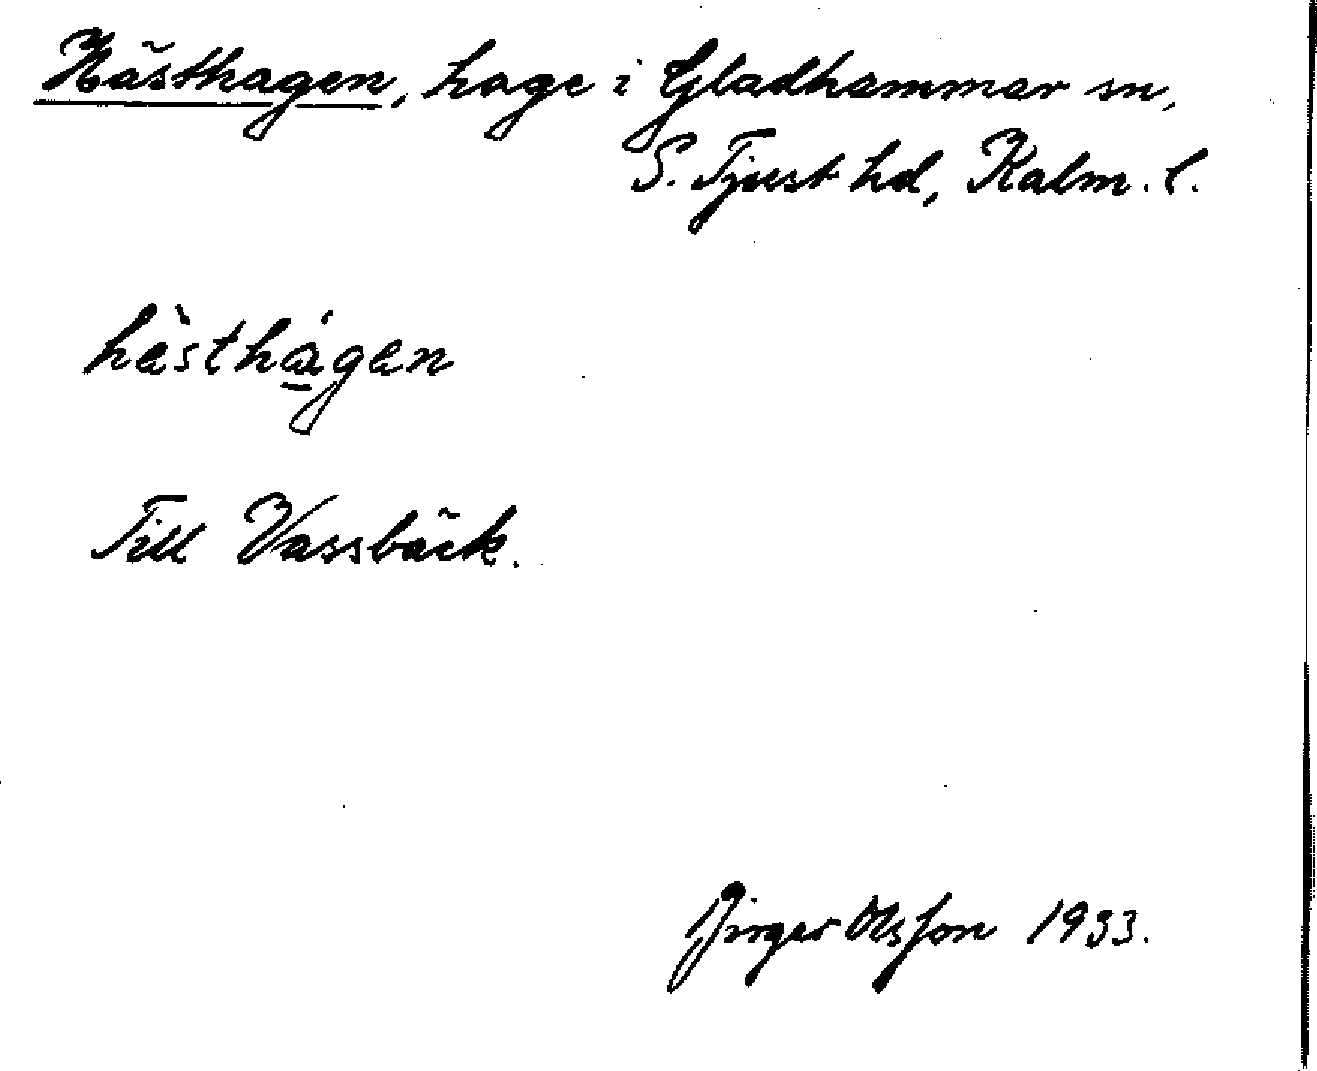 Hästhagen, hage i Gladhammar sn,
S. Tjust hd, Kalm. l.
hὲsthá̱gen
Till Vassbäck.
Birger Olsson 1933.